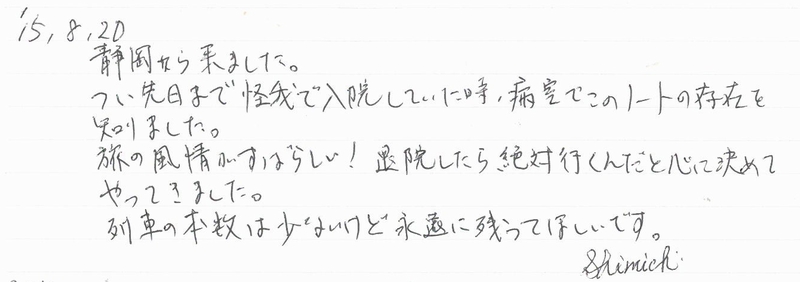 '15,8,20
静岡から来ました。
つい先日まで怪我で入院していた時、病室でこのノートの存在を
知りました。
旅の風情がすばらしい！退院したら絶対行くんだと心に決めて
やってきました。
列車の本数は少ないけど永遠に残ってほしいです。
Shimichi